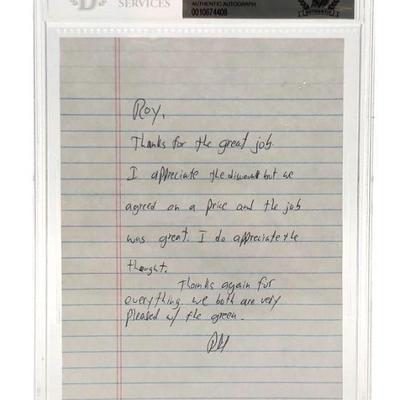 SERVICES
AUTHENTIC AUTOGRAPH
0010674408
Roy,
Thanks for the great job
I appreciate the discount but we
agreed on a price and the job
was great. I do appreciate the
thought.
Thanks again for
everything. we both are very
pleased w/ the green.